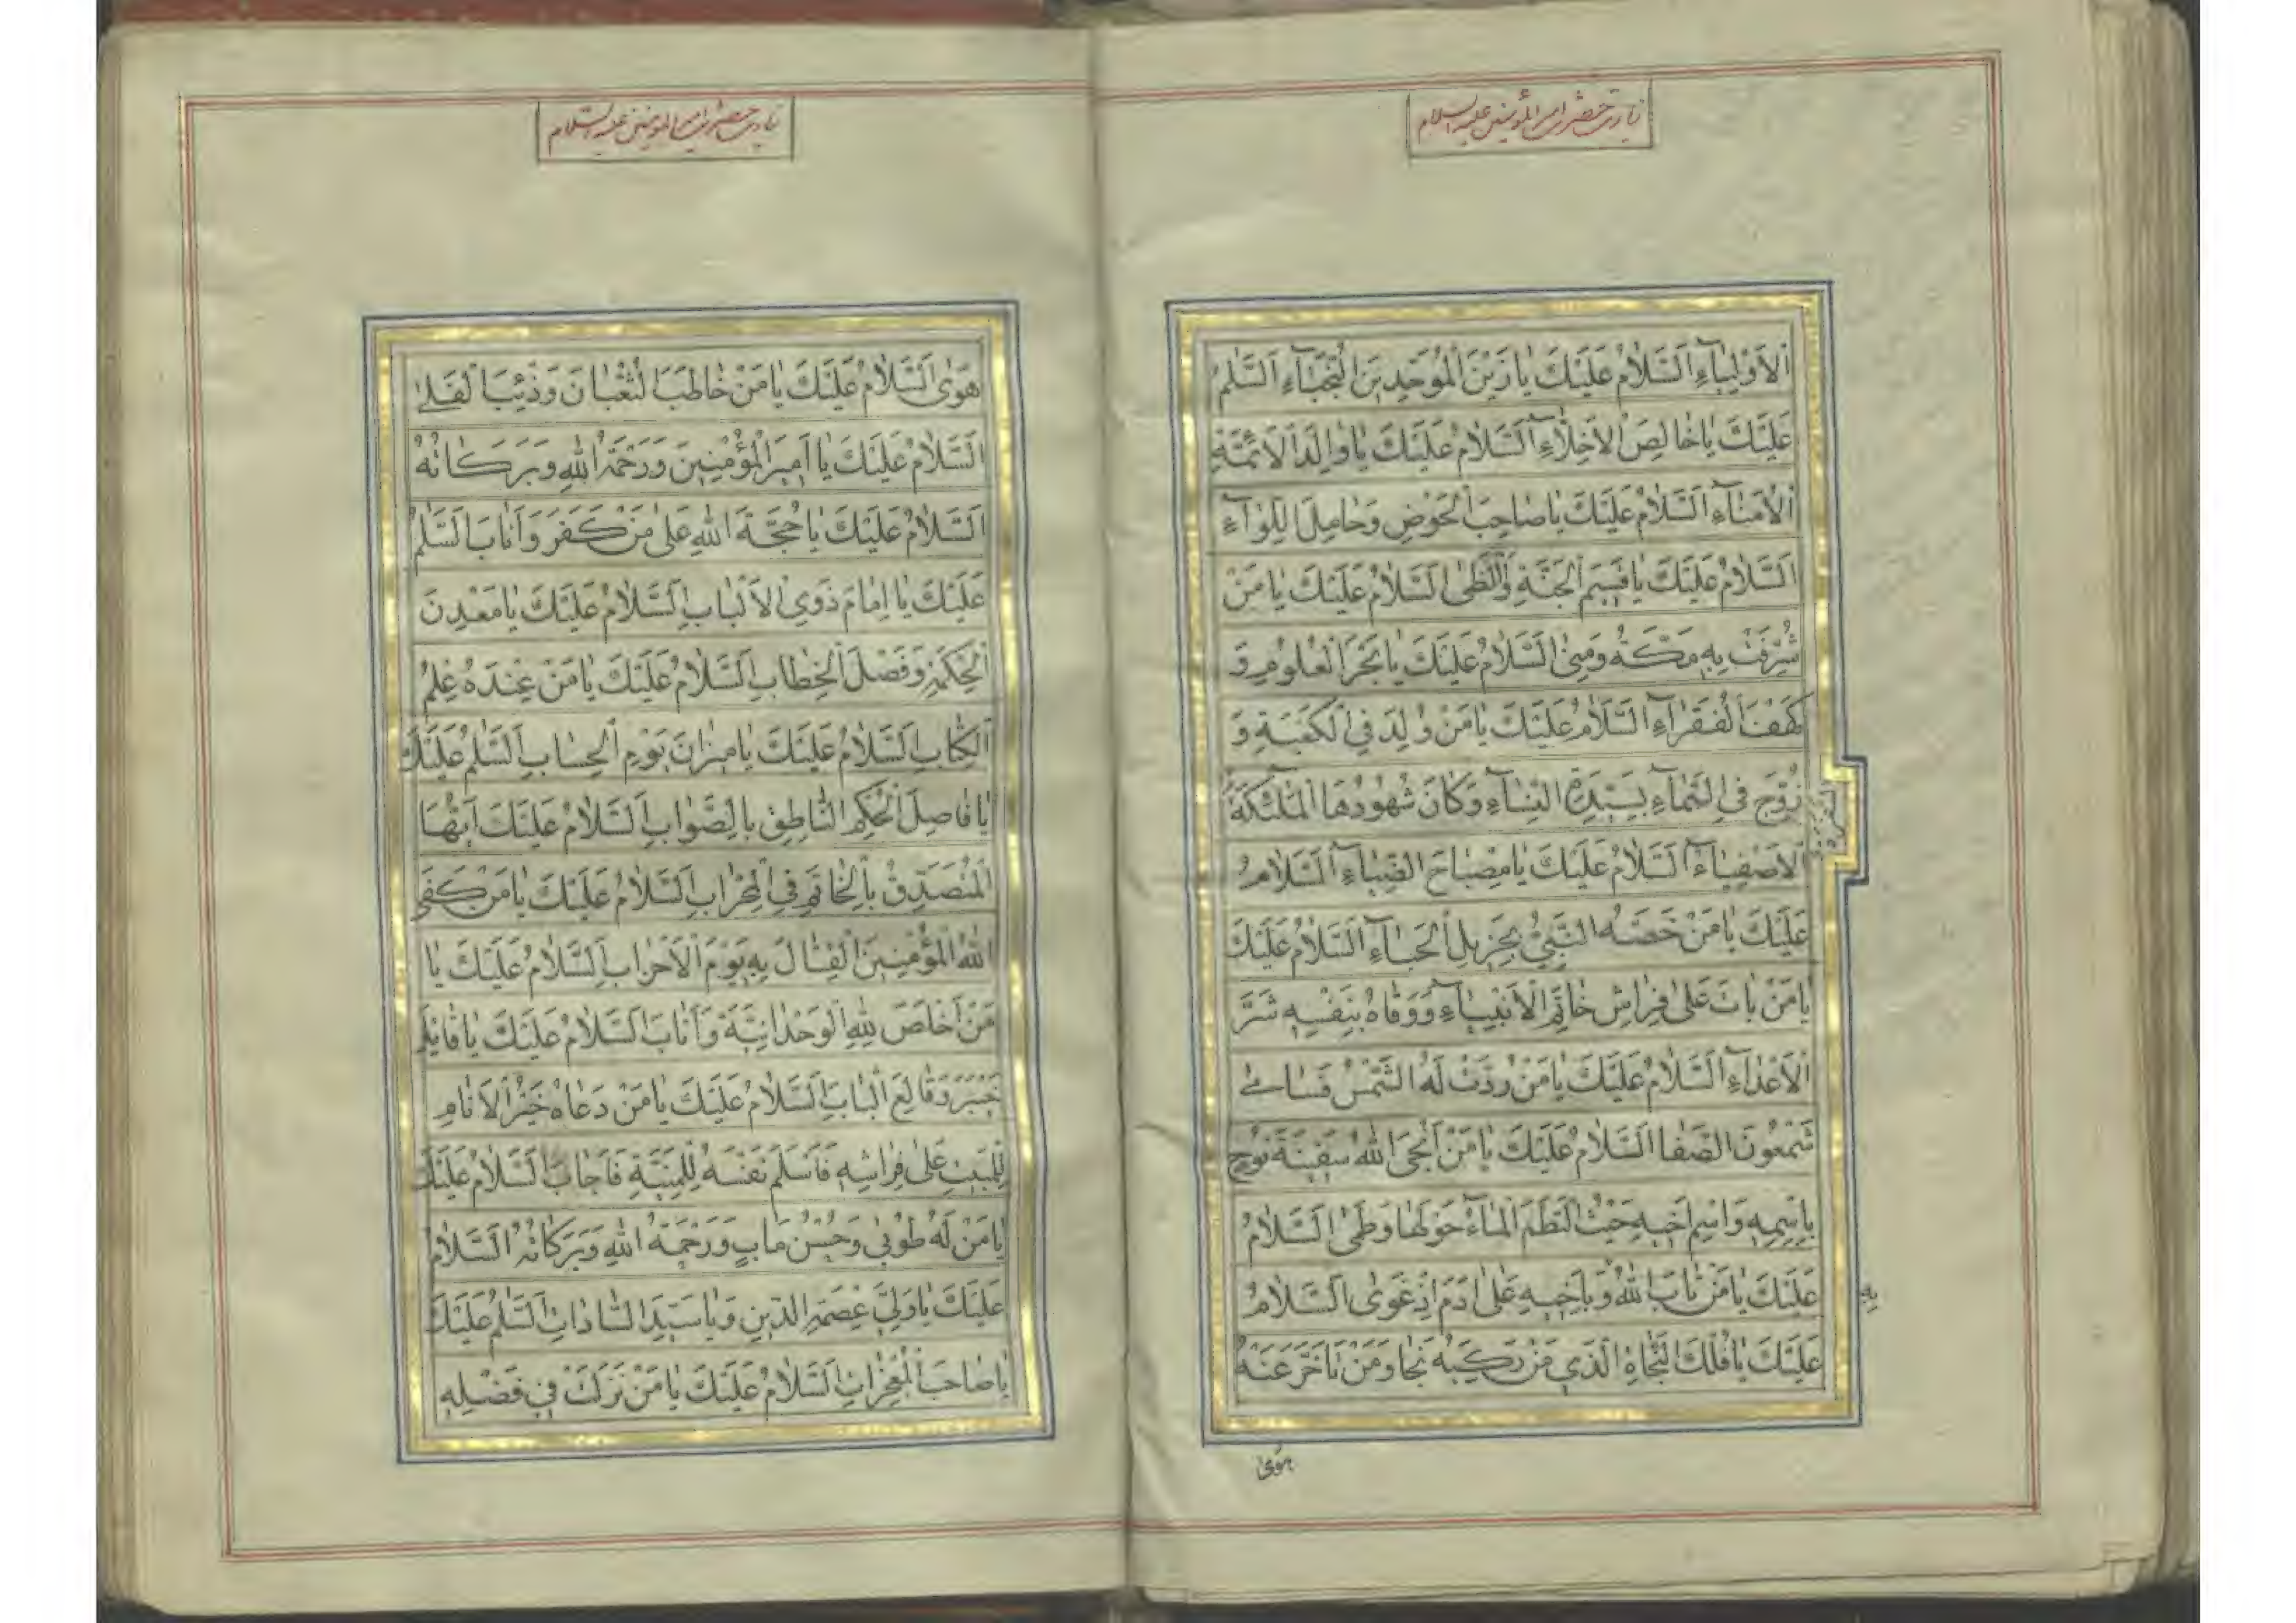 زیارت حضرت امیرالمؤمنین علیه السلام
اَلْاَوْلِیٰآءِ اَلسَّلٰامُ عَلَیْكَ یٰا زَیْنَ الْمُوَحِّدینَ النُّجَبٰآءِ اَلسَّلٰمُ
عَلَیْكَ یٰا خٰالِصَ الْاَخِلّٰآءِ اَلسَّلٰامُ عَلَیْكَ یٰا وٰالِدَ الْاَئِمَّةِ
الْاُمَنٰآءِ اَلسَّلٰامُ عَلَیْكَ یٰا صٰاحِبَ الْحَوْضِ وَحٰامِلَ اللِّوٰآءِ
اَلسَّلٰامُ عَلَیْكَ یٰا قَسیمَ الْجَنَّةِ وَاللَّظٰی اَلسَّلٰامُ عَلَیْكَ یٰا مَنْ
شُرِّفَتْ بِهِ مَكَّةُ وَمِنٰی اَلسَّلٰامُ عَلَیْكَ یٰا بَحْرَ الْعُلُومِ وَ
كَهْفَ الْفُقَرٰآءِ اَلسَّلٰامُ عَلَیْكَ یٰا مَنْ وُلِدَ فِی الْكَعْبَةِ وَ
زُوِّجَ فِی السَّمٰآءِ بِسَیِّدَةِ النِّسٰآءِ وَكٰانَ شُهُودُهَا الْمَلٰٓئِكَةُ
الْاَصْفِیٰآءُ اَلسَّلٰامُ عَلَیْكَ یٰا مِصْبٰاحَ الضِّیٰآءِ اَلسَّلٰامُ
عَلَیْكَ یٰا مَنْ خَصَّهُ النَّبِیُّ بِجَزیلِ الْحَبٰآءِ اَلسَّلٰامُ عَلَیْكَ
یٰا مَنْ بٰاتَ عَلٰی فِرٰاشِ خٰاتَمِ الْاَنْبِیٰآءِ وَوَقٰاهُ بِنَفْسِهِ شَرَّ
الْاَعْدٰآءِ اَلسَّلٰامُ عَلَیْكَ یٰا مَنْ رُدَّتْ لَهُ الشَّمْسُ فَسٰامٰی
شَمْعُونَ الصَّفٰا اَلسَّلٰامُ عَلَیْكَ یٰا مَنْ اَنْجَی اللهُ سَفینَةَ نُوحٍ
بِاسْمِهِ وَاسْمِ اَخیهِ حَیْثُ الْتَطَمَ الْمٰآءُ حَوْلَهٰا وَطَمٰی اَلسَّلٰامُ
عَلَیْكَ یٰا مَنْ تٰابَ اللهُ وَبِاَخیهِ عَلٰی اٰدَمَ اِذْ غَوٰی اَلسَّلٰامُ
بِهِ
عَلَیْكَ یٰا فُلْكَ النَّجٰاةِ الَّذی مَنْ رَكِبَهُ نَجٰا وَمَنْ تَاَخَّرَ عَنْهُ
هَوٰی
زیارت حضرت امیرالمؤمنین علیه السلام
هَوٰی اَلسَّلٰامُ عَلَیْكَ یٰا مَنْ خٰاطَبَ الثُّعْبٰانَ وَذِئْبَ الْفَلٰا
اَلسَّلٰامُ عَلَیْكَ یٰا اَمیرَ الْمُؤْمِنینَ وَرَحْمَةُ اللهِ وَبَرَكٰاتُهُ
اَلسَّلٰامُ عَلَیْكَ یٰا حُجَّةَ اللهِ عَلٰی مَنْ كَفَرَ وَاَنٰابَ اَلسَّلٰمُ
عَلَیْكَ یٰا اِمٰامَ ذَوِی الْاَلْبٰابِ اَلسَّلٰامُ عَلَیْكَ یٰا مَعْدِنَ
الْحِكْمَةِ وَفَصْلَ الْخِطٰابِ اَلسَّلٰامُ عَلَیْكَ یٰا مَنْ عِنْدَهُ عِلْمُ
الْكِتٰابِ اَلسَّلٰامُ عَلَیْكَ یٰا میزٰانَ یَوْمِ الْحِسٰابِ اَلسَّلٰمُ عَلَیْكَ
یٰا فٰاصِلَ الْحُكْمِ النّٰاطِقِ بِالصَّوٰابِ اَلسَّلٰامُ عَلَیْكَ اَیُّهَا
الْمُتَصَدِّقُ بِالْخٰاتَمِ فِی الْمِحْرٰابِ اَلسَّلٰامُ عَلَیْكَ یٰا مَنْ كَفَی
اللهُ الْمُؤْمِنینَ الْقِتٰالَ بِهِ یَوْمَ الْاَحْزٰابِ اَلسَّلٰامُ عَلَیْكَ یٰا
مَنْ اَخْلَصَ لِلّٰهِ الْوَحْدٰانِیَّةَ وَاَنٰابَ اَلسَّلٰامُ عَلَیْكَ یٰا قٰاتِلَ
خَیْبَرَ وَقٰالِعَ الْبٰابِ اَلسَّلٰامُ عَلَیْكَ یٰا مَنْ دَعٰاهُ خَیْرُ الْاَنٰامِ
لِلْمَبیتِ عَلٰی فِرٰاشِهِ فَاَسْلَمَ نَفْسَهُ لِلْمَنِیَّةِ فَاَجٰابَ اَلسَّلٰامُ عَلَیْكَ
یٰا مَنْ لَهُ طُوبٰی وَحُسْنُ مَاٰبٍ وَرَحْمَةُ اللهِ وَبَرَكٰاتُهُ اَلسَّلٰامُ
عَلَیْكَ یٰا وَلِیَّ عِصْمَةِ الدّینِ وَیٰا سَیِّدَ السّٰادٰاتِ اَلسَّلٰمُ عَلَیْكَ
یٰا صٰاحِبَ الْمُعْجِزٰاتِ اَلسَّلٰامُ عَلَیْكَ یٰا مَنْ نَزَلَتْ فی فَضْلِهِ